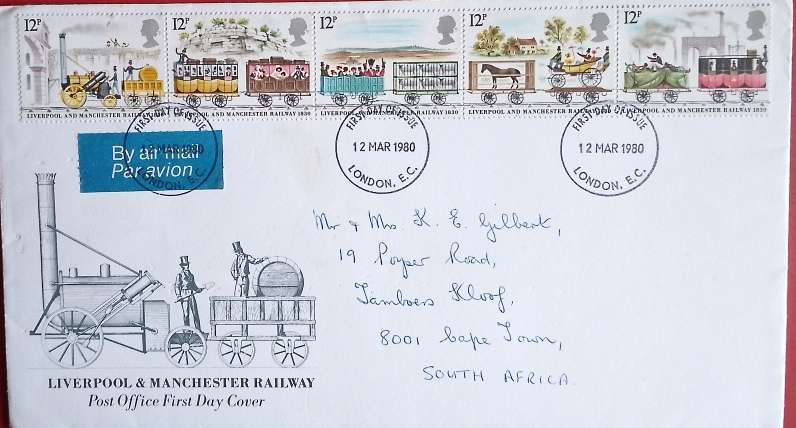 12P
12P
12P
12P
12P
LIVERPOOL AND MANCHESTER RAILWAY 1830
LIVERPOOL AND MANCHESTER RAILWAY 1830
LIVERPOOL AND MANCHESTER RAILWAY 1830
LIVERPOOL AND MANCHESTER RAILWAY 1830
LIVERPOOL AND MANCHESTER RAILWAY 1830
FIRST DAY OF ISSUE
12 MAR 1980
LONDON, E.C.
FIRST DAY OF ISSUE
12 MAR 1980
LONDON, E.C.
FIRST DAY OF ISSUE
12 MAR 1980
LONDON, E.C.
By air mail
Par avion
Mr & Mrs K. E. Gilbert,
19 Poyser Road,
Tamboers Kloof,
8001 Cape Town,
SOUTH AFRICA.
LIVERPOOL & MANCHESTER RAILWAY
Post Office First Day Cover